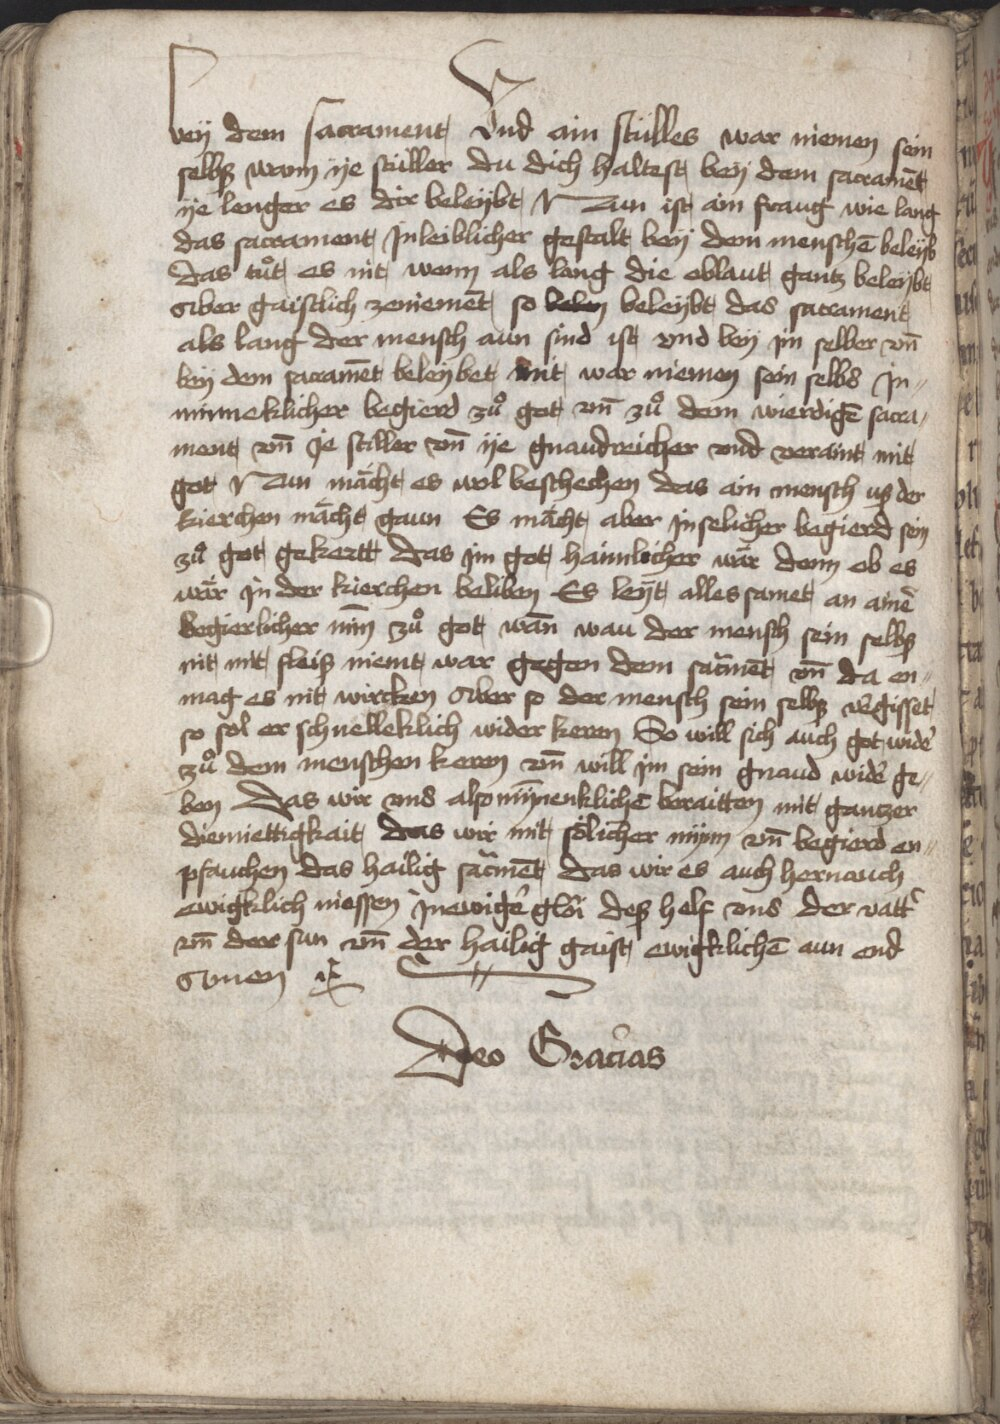 bey dem sacrament Vnd ain stilles war niemen sein
selbß wann ye stiller du dich haltest bey dem sacramēt
ye lenger es dir beleybt Nun ist ain fraug wie lang
das sacrament Jn leiblicher gestalt bey dem menschē beleyb
das tůt es nit wenn als lang die oblaut gantz beleybt
Aber gaistlich zeniemēt so beleybt das sacrament
als lang der mensch aun sind ist vnd bey im selber vn̄
bey dem sacramēt beleybet mit war niemen sein selbs Jn„
minneklicher begierd zů got vn̄ zů dem wierdigē sacra„
ment vn̄ Je stiller vn̄ ye gnaudreicher vnd veraint mit
got Nun mächt es wol beschechen das ain mensch uß der
kierchen mächt gaun Es mächt aber Jn selicher begierd sein
zů got gekertt das im got haimlicher wär denn ob es
wär Jn der kierchen beliben Es leyt alles samet an ainē
begierlicher min̄ zů got wān wau der mensch sein selbß
nit mit fleiß niemt war gegen dem sacmēt vn̄ da en„
mag es nit wircken Aber so der mensch sein selbß vergisset
so sol er schnelleklich wider keren So will sich auch got wider
zů dem menschen keren vn̄ will im sein gnaud wider ge„
ben Das wir vns also mynenklichē beraitten mit gantzer
diemiettigkait das wir mit sölicher mynn vn̄ begierd en„
pfauchen das hailig sacmēt das wir es auch hernauch
ewigklich niessen Jn ewiger glori deß helf vns der vatter
vn̄ der sun vn̄ der hailig gaist ewigklichē aun end
Amen
Deo Gracias